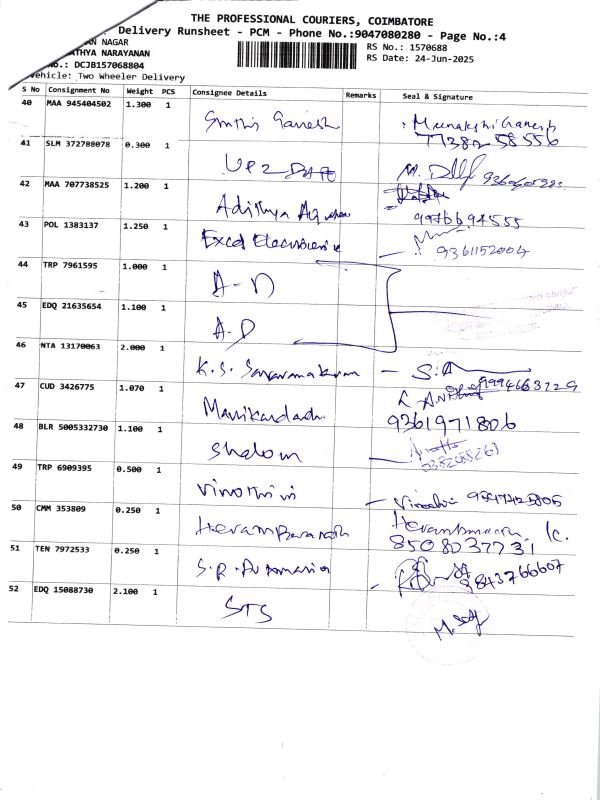 THE PROFESSIONAL COURIERS, COIMBATORE
Delivery Runsheet - PCM - Phone No.:9047080280 - Page No.:4
NAGAR
ATHYA NARAYANAN
No.: DCJB157068804
Vehicle: Two Wheeler Delivery
RS No.: 1570688
RS Date: 24-Jun-2025
S No Consignment No Weight PCS Consignee Details Remarks Seal & Signature
40 MAA 945404502 1.300 1 Ganesh Meenakshi Ganesh
77382 58556
41 SLM 372788078 0.300 1 UP2DATE M.
42 MAA 707738525 1.200 1 Adithya
9976694555
43 POL 1383137 1.250 1 Excel Electronics
9361152004
44 TRP 7961595 1.000 1 A-D
45 EDQ 21635654 1.100 1 A-D
46 NTA 13170063 2.000 1 K.S. S.A
47 CUD 3426775 1.070 1 Manikandan
9361971806
48 BLR 5005332730 1.100 1 Shalom
49 TRP 6909395 0.500 1 Vinothini
50 CMM 353809 0.250 1
8508037731
51 TEN 7972533 0.250 1 S.R.
9843766607
52 EDQ 15088730 2.100 1 STS
M.